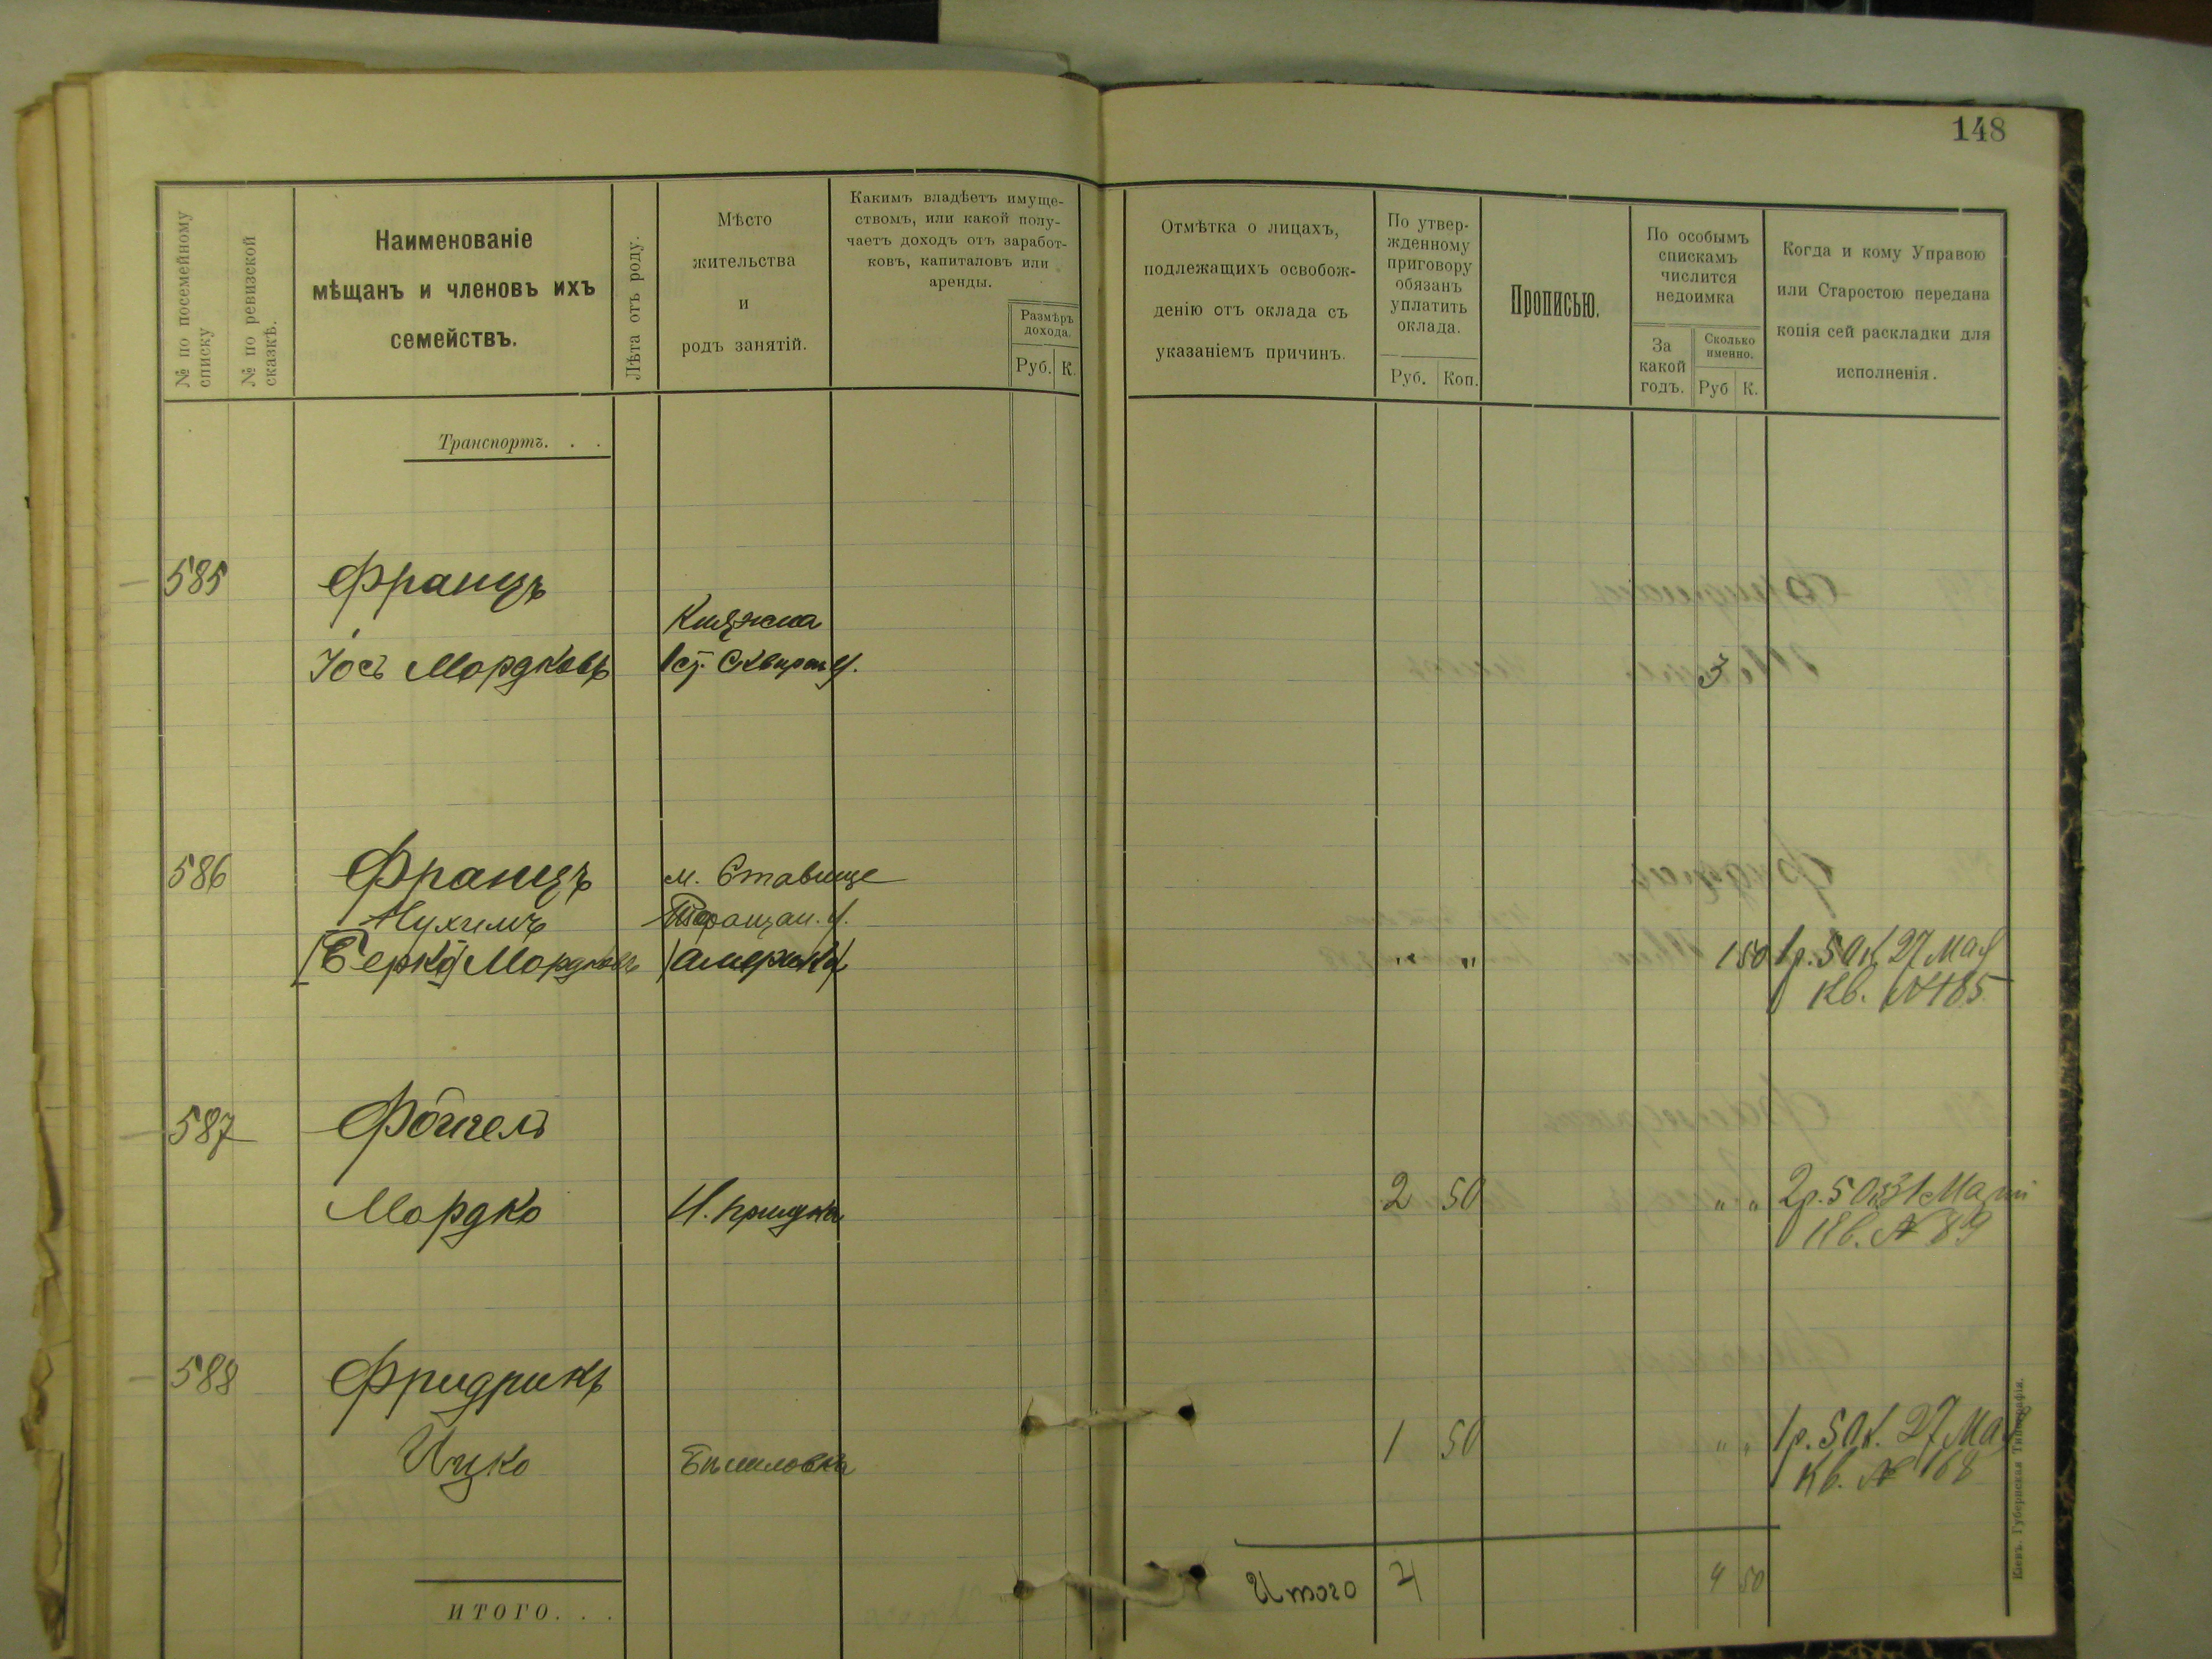 148
№ по посемейному
списку
№ по ревизской
сказкѣ.
Наименованіе
мѣщанъ и членовъ ихъ
семействъ.
Лѣта отъ роду.
Мѣсто
жительства
и
родъ занятій.
Какимъ владѣетъ имуще-
ствомъ, или какой полу-
чаетъ доходъ отъ заработ-
ковъ, капиталовъ или
аренды.
Размѣръ
дохода.
Руб. К.
Отмѣтка о лицахъ,
подлежащихъ освобож-
денію отъ оклада съ
указаніемъ причинъ.
По утвер-
жденному
приговору
обязанъ
уплатить
оклада.
Руб. Коп.
Прописью.
По особымъ
спискамъ
числится
недоимка
За
какой
годъ.
Сколько
именно.
Руб К.
Когда и кому Управою
или Старостою передана
копія сей раскладки для
исполненія.
Транспортъ. . .
585 Францъ
Княжна
Іосъ Мордковъ Сквирск. у. 3
586 Францъ м. Ставище
Нухимъ Таращан. у.
(Берко) Мордковъ (Америка) " " 1 50 1р. 50к. 27 Мая
Кв. № 185
587 Фогель
Мордко 2 50 " " 2р. 50к. 31 Мар
Кв. № 89
588 Фридрикъ
Ицко 1 50 " " 1р. 50к. 27 Мая
Кв. № 168
Итого 4 4 50
ИТОГО. . .
Кіевъ. Губернская Типографія.